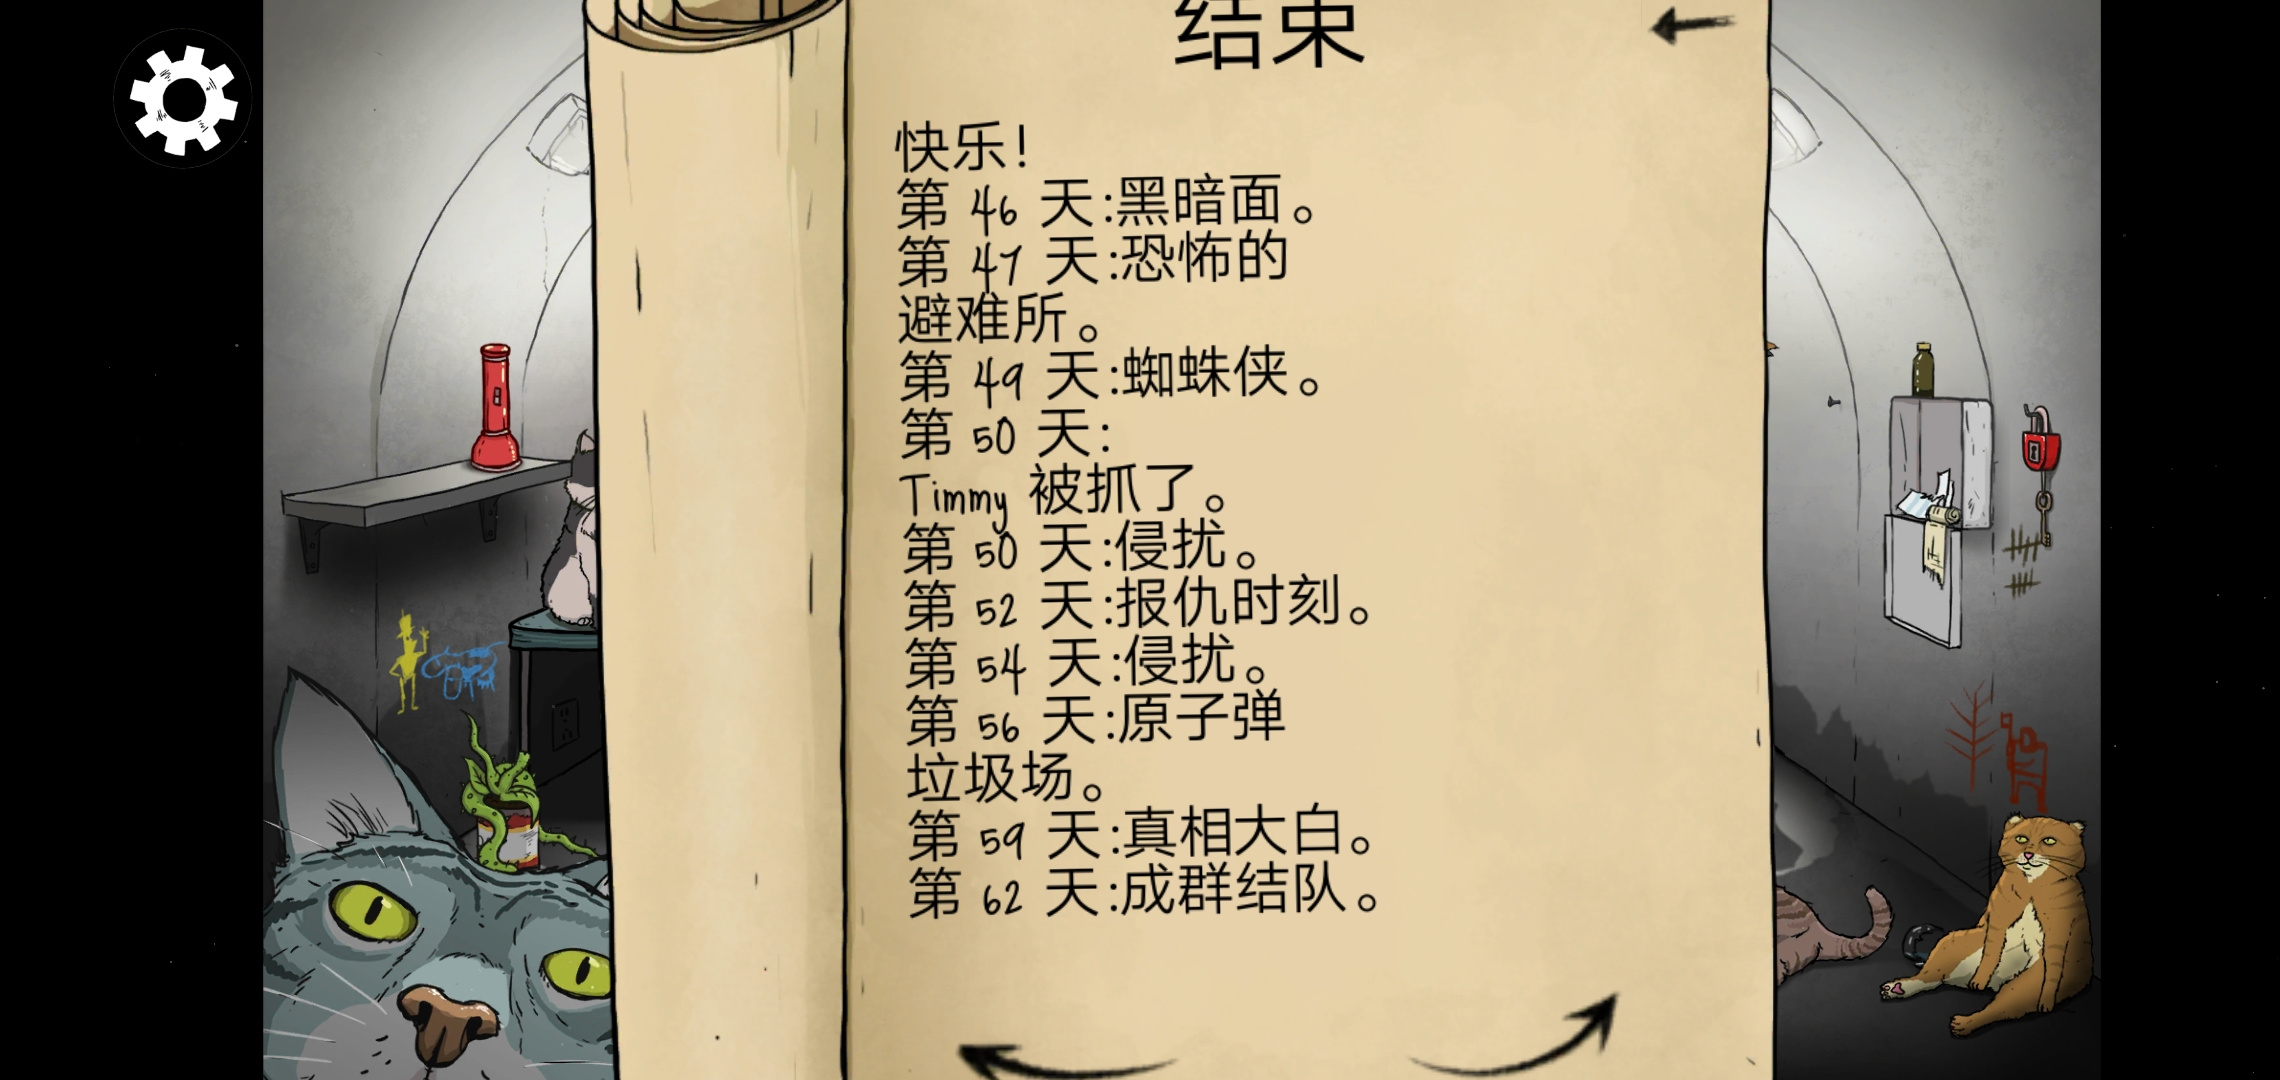 结束
快乐!
第 46 天:黑暗面。
第 47 天:恐怖的
避难所。
第 49 天:蜘蛛侠。
第 50 天:
Timmy 被抓了。
第 50 天:侵扰。
第 52 天:报仇时刻。
第 54 天:侵扰。
第 56 天:原子弹
垃圾场。
第 59 天:真相大白。
第 62 天:成群结队。